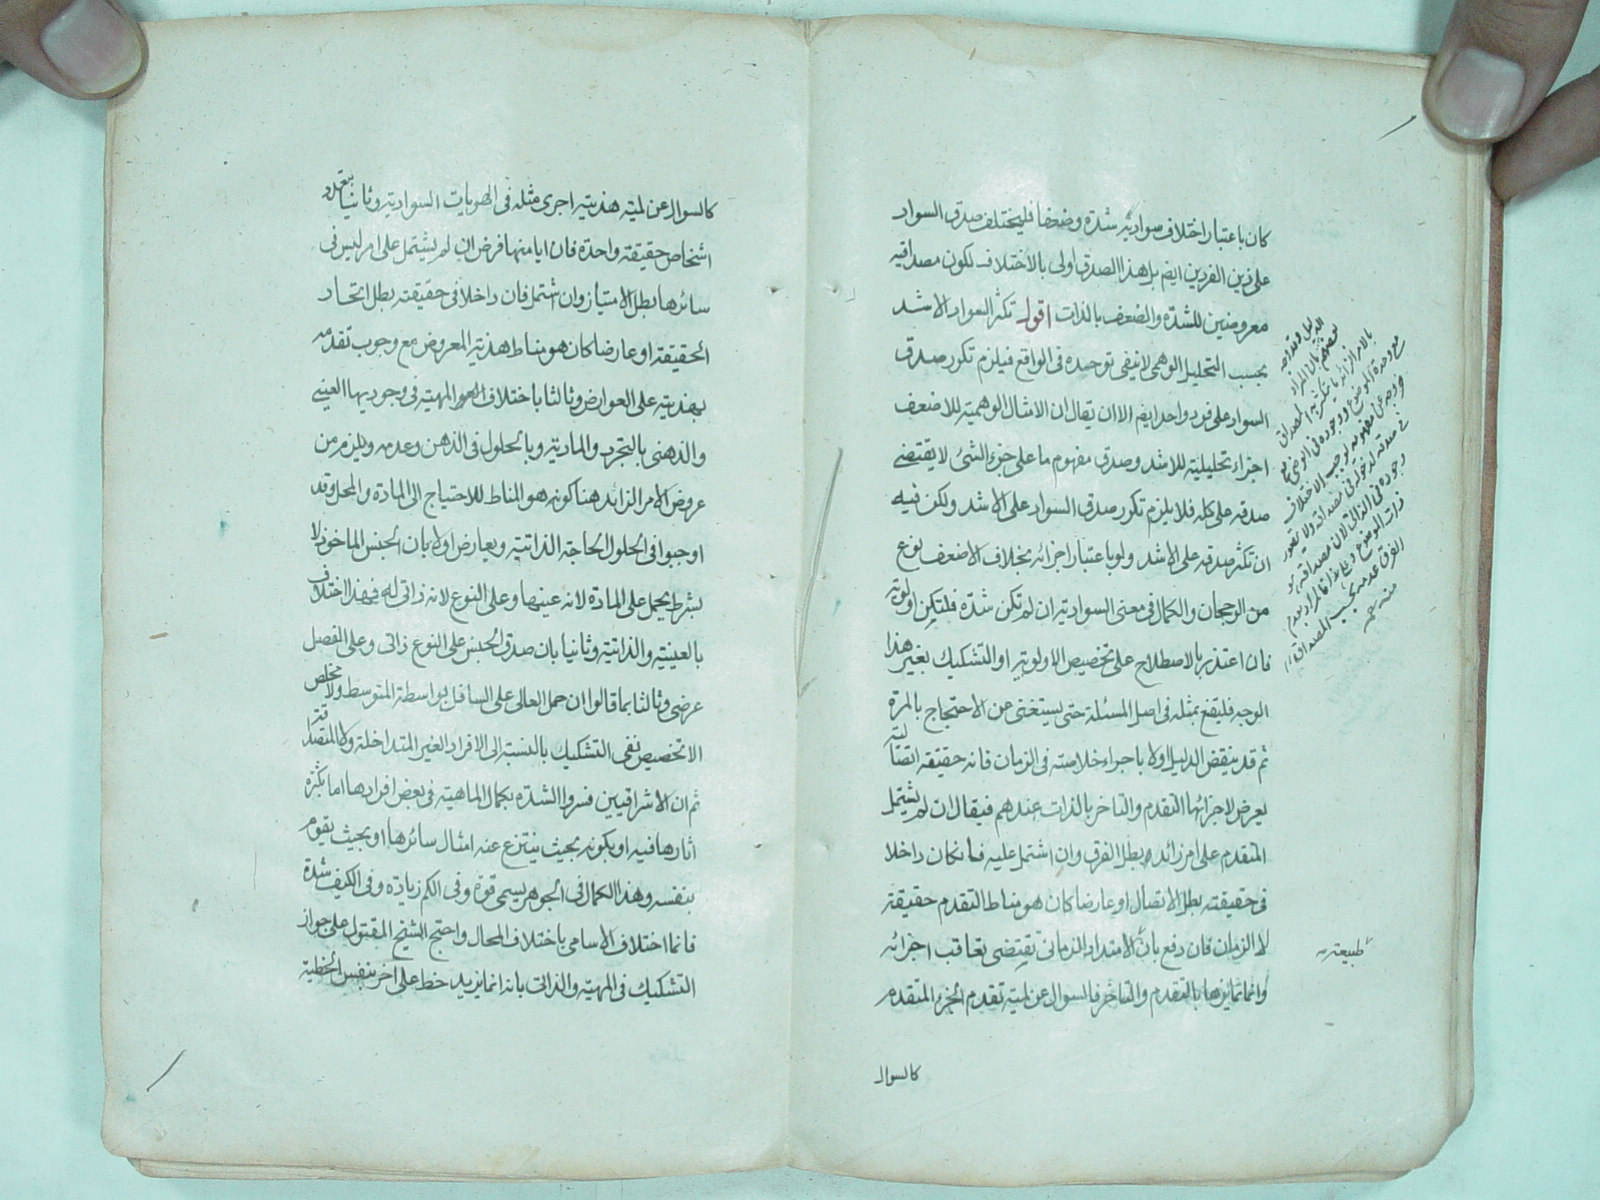 كان باعتبار اختلاف سواديته شدة وضعفا فليختلف صدق السواد
على ذين الفردين ايضم بل هذا الصدق اولى بالاختلاف لكون مصداقيه
معروضين للشدة والضعف بالذات اقول تكثر السواد الاشد
بحسب التحليل الوهمى لا ينفى توحيده فى الواقع فيلزم تكرر صدق
السواد على فرد واحد ايضم الا ان يقال ان الامثال الوهمية للاضعف
اجزاء تحليلية للاشد وصدق مفهوم ما على جزء الشئ لا يقتضى
صدقه على كله فلا يلزم تكرر صدق السواد على الاشد ولكن فيه
ان تكثر صدقه على الاشد ولو باعتبار اجزائه بخلاف الاضعف نوع
من الرجحان والكمال فى معنى السوادية ان لم تكن شدة فلتكن اولوية
فان اعتذر بالاصطلاح على تخصيص الاولوية او التشكيك بغير هذا
الوجه فليقنع بمثله فى اصل المسئلة حتى يستغنى عن الاحتجاج بالمرة
ثم قد ينقض الدليل اولا باجراء خلاصته فى الزمان فانه حقيقة اتصالية
يعرض لاجزائها التقدم والتاخر بالذات عندهم فيقال ان لم يشتمل
المتقدم على امر زائد بطل الفرق وان اشتمل عليه فان كان داخلا
فى حقيقته بطل الاتصال او عارضا كان هو مناط التقدم حقيقة
لا الزمان فان دفع بان الامتداد الزمانى تقتضى تعاقب اجزائه
وانما تمايزها بالتقدم والتاخر فالسوال عن لمية تقدم الجزء المتقدم
طبيعته
كالسوال
كالسوال عن لمية هذيته اجرى مثله فى الهويات السوادية وثانيا بتعدد
اشخاص حقيقة واحدة فان ايا منها فرض ان لم يشتمل على امر ليس فى
سائرها بطل الامتياز وان اشتمل فان داخلا فى حقيقته بطل اتحاد
الحقيقة او عارضا كان هو مناط هذية المعروض مع وجوب تقدمه
بهذيته على العوارض وثالثا باختلاف المهية فى وجوديها العينى
والذهنى بالتجرد والمادية وبالحلول فى الذهن وعدمه ويلزم من
عروض الامر الزائد هنا كونه هو المناط للاحتياج الى المادة والمحل وقد
اوجبوا فى الحلول الحاجة الذاتية ويعارض اولا بان الجنس الماخوذ لا
بشرط يحمل على المادة لانه عينها وعلى النوع لانه ذاتى له فهذا اختلاف
بالعينية والذاتية وثانيا بان صدق الجنس على النوع ذاتى وعلى الفصل
عرضى وثالثا بما قالوا ان حمل العالى على السافل بواسطة المتوسط ولا مخلص
الا تخصيص نفى التشكيك بالنسبة الى الافراد الغير المتداخلة ولا المتصادقة
ثم ان الاشراقيين فسروا الشدة بكمال الماهية فى بعض افرادها اما بكثرة
اثارها فيه او بكونه بحيث ينتزع عنه امثال سائرها او بحيث يقوم
بنفسه وهذا الكمال فى الجوهر يسمى قوة وفى الكم زيادة وفى الكيف شدة
فانما اختلاف الاسامى باختلاف المحال واحتج الشيخ المقتول على جواز
التشكيك فى المهية والذاتى بانه انما يزيد خط على اخر بنفس الخطية